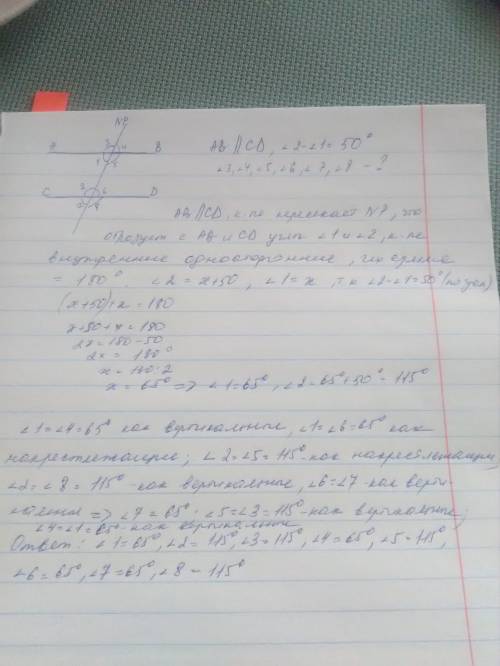 NP
A 3 4 B
1 5
AB||CD, ∠2-∠1=50°
∠3,∠4,∠5,∠6,∠7,∠8 - ?
C 2 6 D
AB||CD, к-ые пересекает NP, что
образует с AB и CD углы ∠1 и ∠2, к-ые
внутренние односторонние, их сумма
= 180°. ∠2 = x+50, ∠1 = x, т.к ∠2-∠1=50° (по усл)
(x+50)+x=180
x+50+x=180
2x=180-50
2x=
x=
x=65° => ∠1=65°, ∠2=65°+50°=115°
∠1=∠4=65° как вертикальные, ∠1=∠6=65° как
накрестлежащие; ∠2=∠5=115° - как накрестлежащие,
∠2=∠8=115° - как вертикальные, ∠6=∠7 - как верти-
кальные => ∠7=65°; ∠5=∠3=115° - как вертикальные;
∠4=∠1=65° - как вертикальные
Ответ: ∠1=65°, ∠2=115°, ∠3=115°, ∠4=65°, ∠5=115°,
∠6=65°, ∠7=65°, ∠8-115°